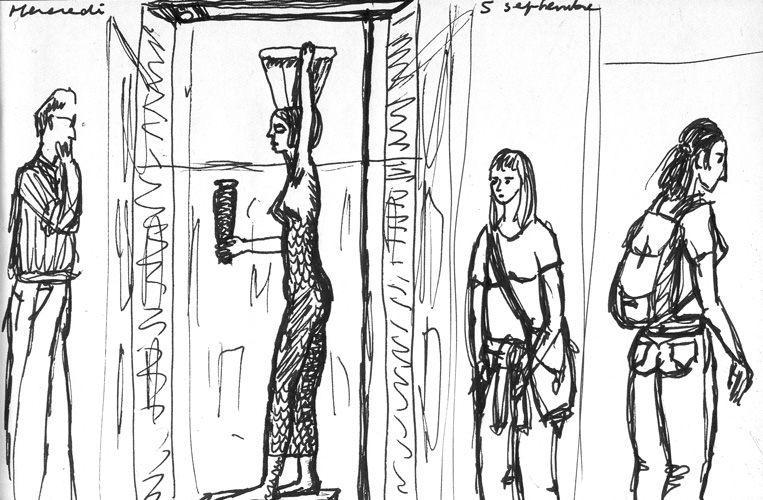 Mercredi 5 septembre